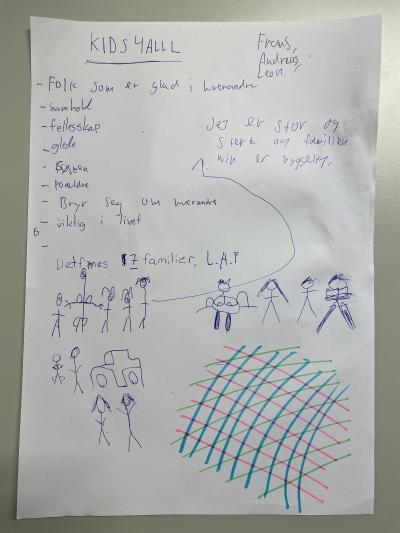 KIDS4ALLL
Andreas,
Leon.
- Folk som er glad i hverandre
- Samhold
- fellesskap
- glede
- foreldre
- Bryr seg um hverandre
- viktig i livet
6
-
Jeg er stor og
sterk og familien
min er hyggelig.
1.
Det finnes 17 familier, L.A.F